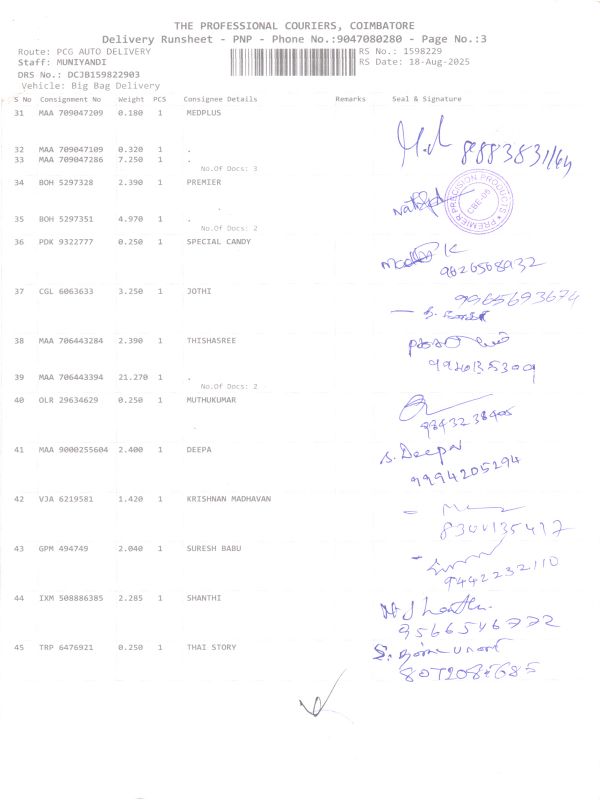 THE PROFESSIONAL COURIERS, COIMBATORE
Delivery Runsheet - PNP - Phone No.:9047080280 - Page No.:3
Route: PCG AUTO DELIVERY RS No.: 1598229
Staff: MUNIYANDI RS Date: 18-Aug-2025
DRS No.: DCJB159822903
Vehicle: Big Bag Delivery
S No Consignment No Weight PCS Consignee Details Remarks Seal & Signature
31 MAA 709047209 0.180 1 MEDPLUS
32 MAA 709047109 0.320 1 .
33 MAA 709047286 7.250 1 .
No.Of Docs: 3
34 BOH 5297328 2.390 1 PREMIER
PREMIER PRECISION PRODUCTS
CBE-06
35 BOH 5297351 4.970 1 .
No.Of Docs: 2
36 PDK 9322777 0.250 1 SPECIAL CANDY
37 CGL 6063633 3.250 1 JOTHI
9965693674
38 MAA 706443284 2.390 1 THISHASREE
39 MAA 706443394 21.270 1 .
No.Of Docs: 2
40 OLR 29634629 0.250 1 MUTHUKUMAR
9843238405
41 MAA 9000255604 2.400 1 DEEPA
S. Deepa
9994205294
42 VJA 6219581 1.420 1 KRISHNAN MADHAVAN
8300135417
43 GPM 494749 2.040 1 SURESH BABU
9442232110
44 IXM 508886385 2.285 1 SHANTHI
9566546772
45 TRP 6476921 0.250 1 THAI STORY